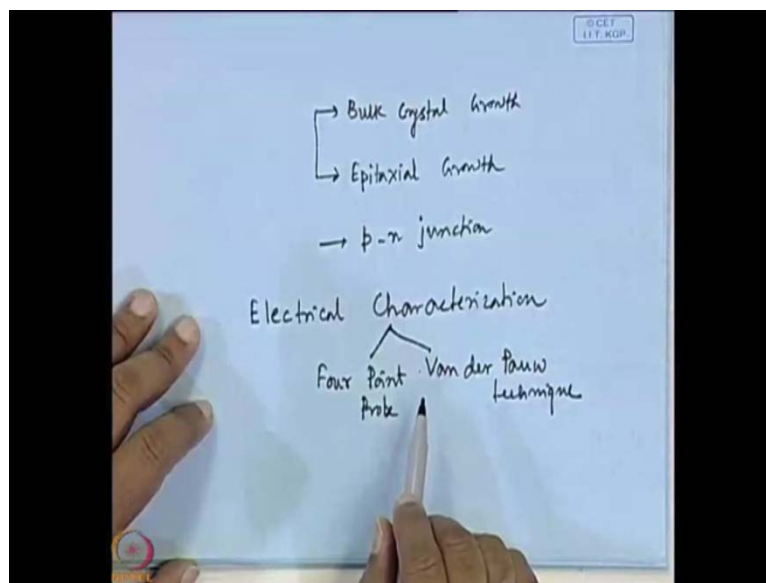 © CET
I.I.T. KGP
→ Bulk Crystal Growth
→ Epitaxial Growth
→ p-n junction
Electrical Characterization
Four Point Van der Pauw
Probe technique